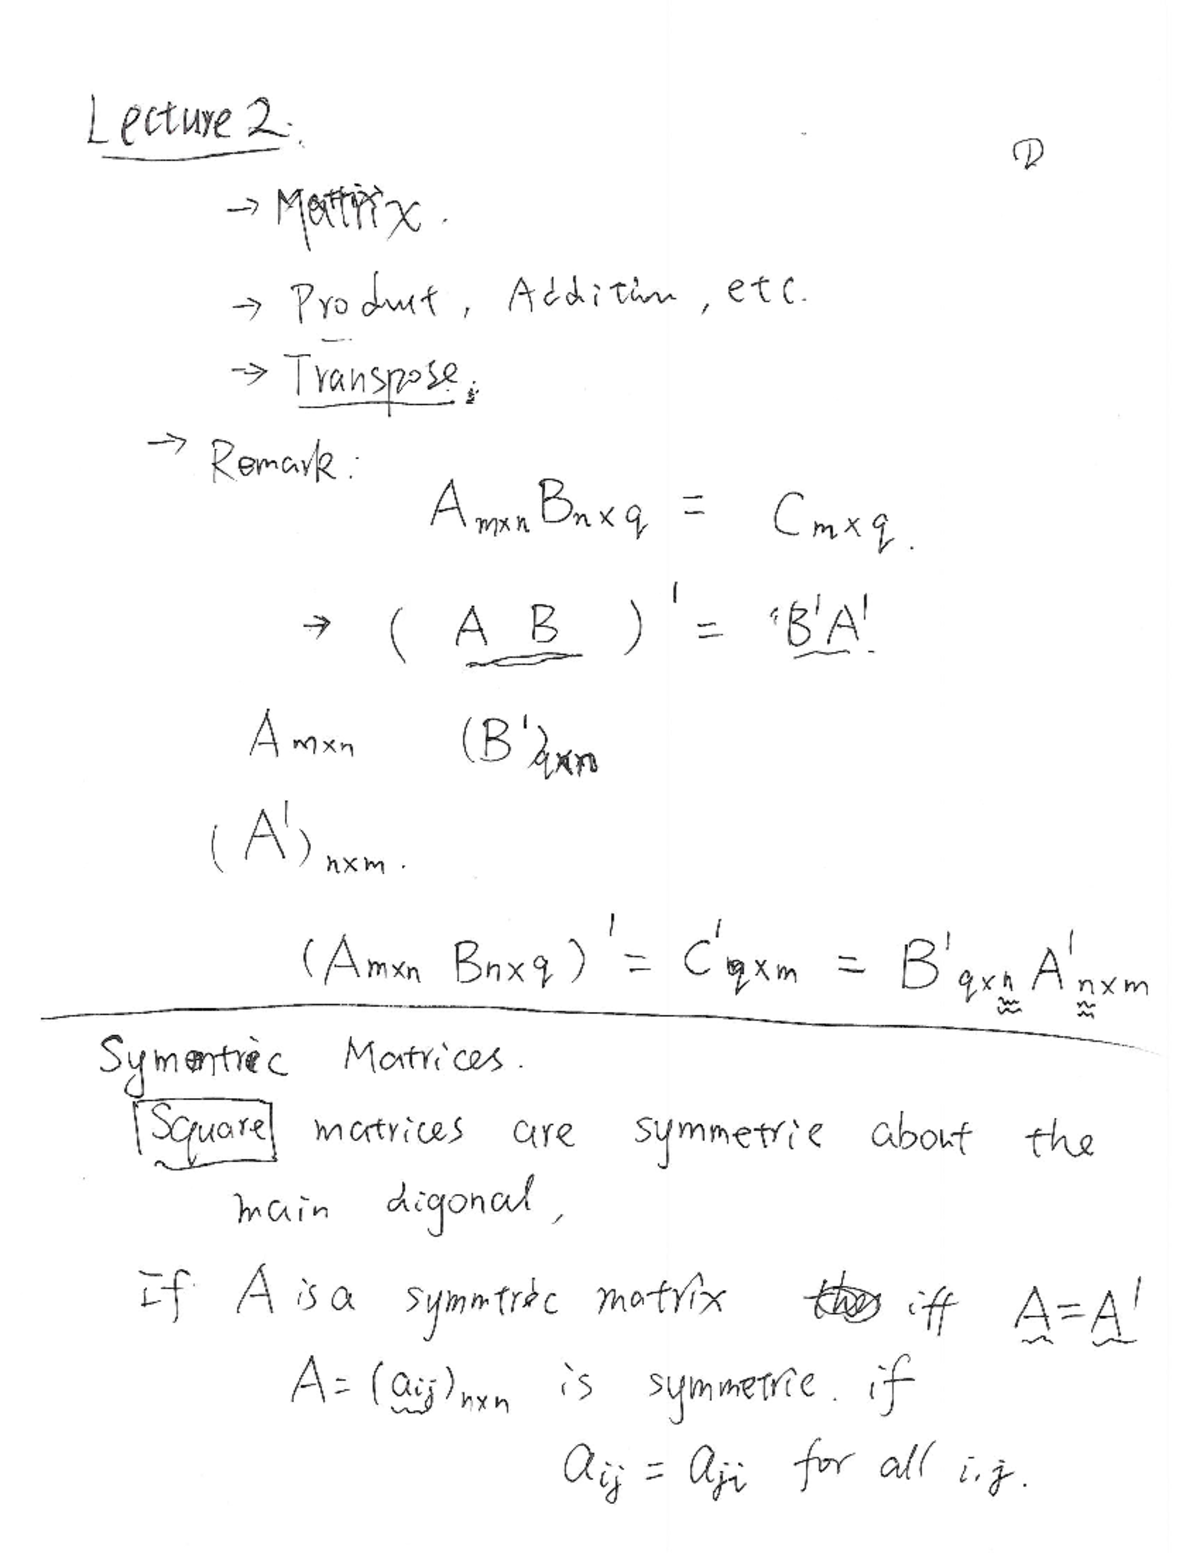 Lecture 2.
①
→ Matrix.
→ Product, Addition, etc.
→ Transpose.
→ Remark:
A m×n B n×q = C m×q.
→ ( A B )' = B'A'.
A m×n (B')q×n
(A')n×m.
(A m×n B n×q)' = C'q×m = B'q×n A'n×m
Symmtric Matrices.
Square matrices are symmetric about the
main digonal,
If A is a symmtric matrix iff A = A'
A = (aij)n×n is symmetric. if
aij = aji for all i,j.